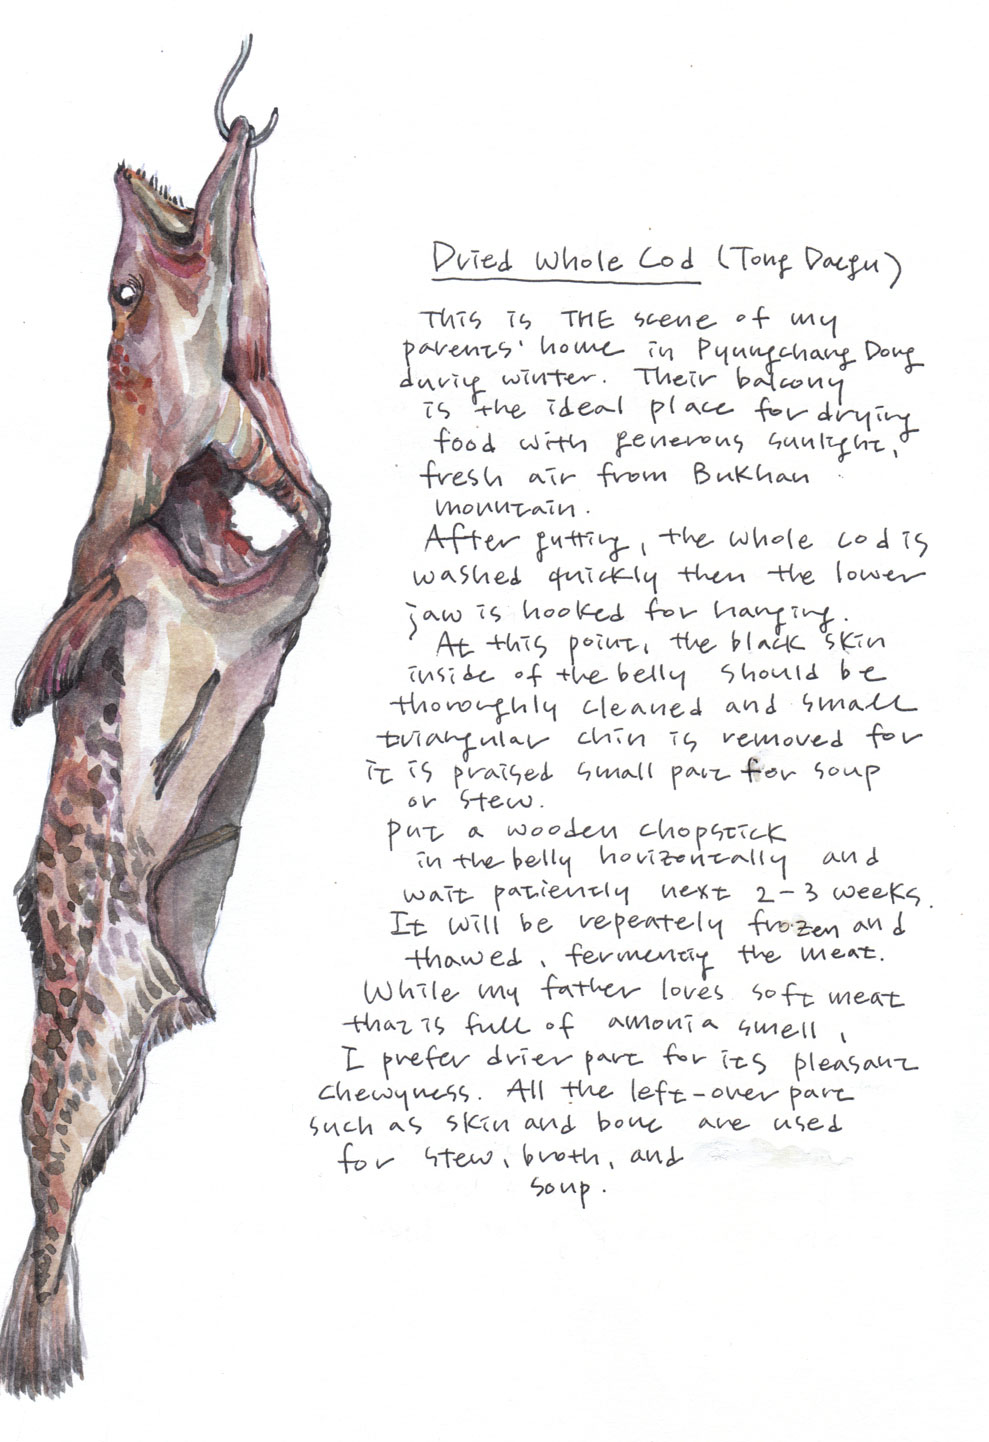 Dried Whole Cod (Tong Daegu)
This is THE scene of my
parents' home in Pyungchang Dong
durig winter. Their balcony
is the ideal place for drying
food with generous sunlight,
fresh air from Bukhan
mountain.
After gutting, the whole cod is
washed quickly then the lower
jaw is hooked for hanging.
At this point, the black skin
inside of the belly should be
thoroughly cleaned and small
triangular chin is removed for
it is praised small part for soup
or stew.
Put a wooden chopstick
in the belly horizontally and
wait patiently next 2-3 weeks.
It will be repeately frozen and
thawed, fermentig the meat.
While my father loves soft meat
that is full of amonia smell,
I prefer drier part for its pleasant
chewyness. All the left-over part
such as skin and bone are used
for stew, broth, and
soup.